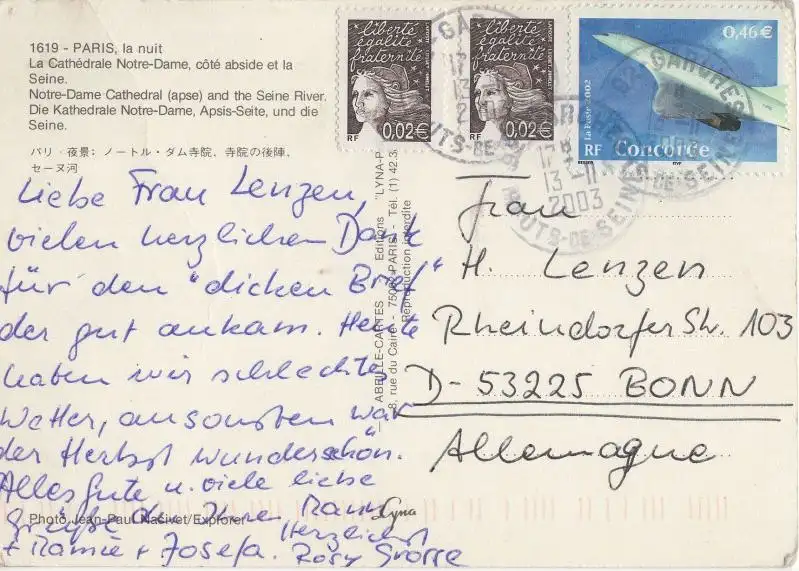 1619 - PARIS, la nuit
La Cathédrale Notre-Dame, côté abside et la
Seine.
Notre-Dame Cathedral (apse) and the Seine River.
Die Kathedrale Notre-Dame, Apsis-Seite, und die
Seine.
パリ・夜景: ノートル・ダム寺院、寺院の後陣、
セーヌ河
Liebe Frau Lenzen,
vielen herzlichen Dank
für den "dicken Brief"
der gut ankam. Heute
haben wir schlechtes
Wetter, ansonsten war
der Herbst wunderschön.
Alles Gute u. viele liebe
Grüße
+ Josefa. Herzlichst
Rosy Grosse
Photo Jean-Paul Nacivet/Explorer
Lyna
ABEILLE-CARTES - Editions "LYNA-P
8, rue du Caire - 75002 PARIS - Tél. (1) 42.3
Reproduction interdite
liberté
égalité
fraternité
RF 0,02€
liberté
égalité
fraternité
RF 0,02€
0,46€
La Poste 2002
RF Concorde
92 GARCHES
HAUTS-DE-SEINE
13-11
2003
Frau
H. Lenzen
Rheindorfer Str. 103
D-53225 BONN
Allemagne